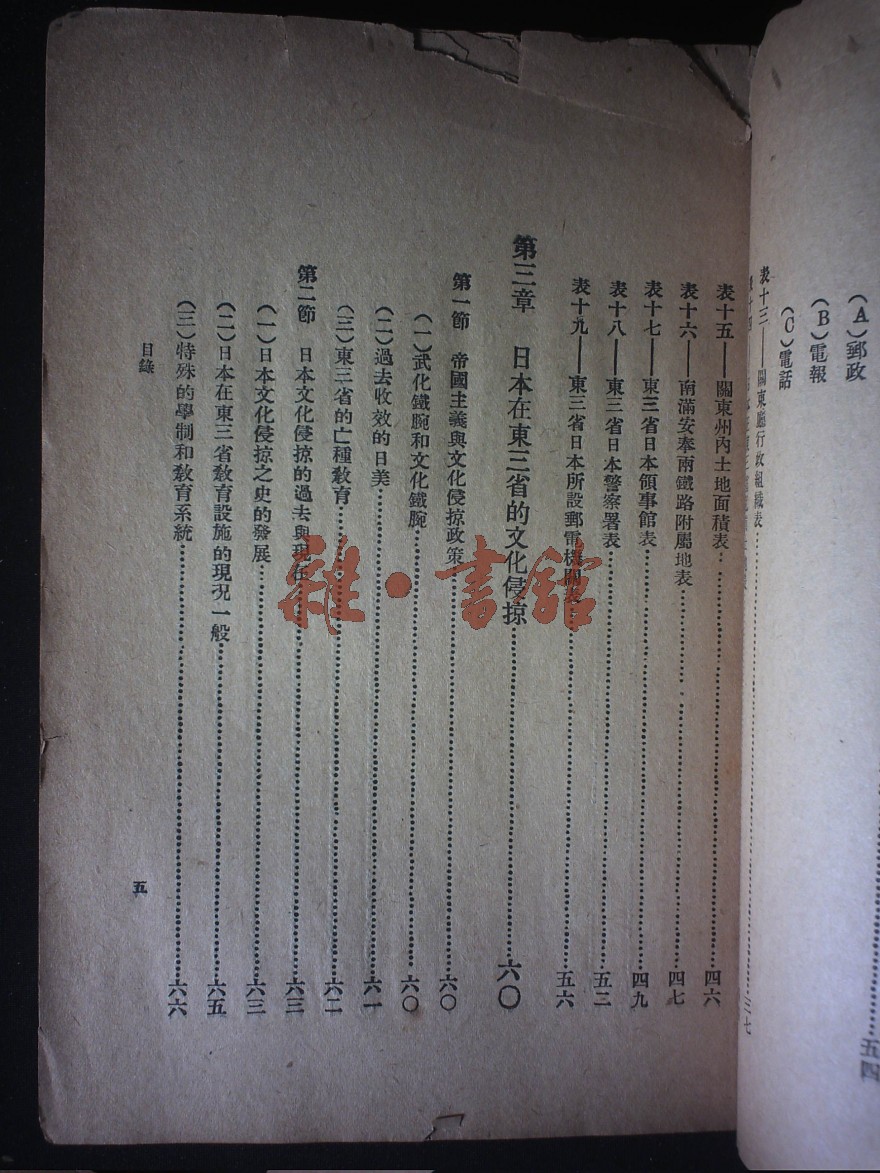 (A)郵政……五四
(B)電報
(C)電話
表十三——關東廳行政組織表……三七
表十五——關東州內土地面積表……四六
表十六——南滿安奉兩鐵路附屬地表……四七
表十七——東三省日本領事館表……四九
表十八——東三省日本警察署表……五三
表十九——東三省日本所設郵電機關表……五六
第三章 日本在東三省的文化侵掠……六〇
第一節 帝國主義與文化侵掠政策……六〇
(一)武化鐵腕和文化鐵腕……六〇
(二)過去收效的日美……六一
(三)東三省的亡種教育……六二
第二節 日本文化侵掠的過去與現在……六三
(一)日本文化侵掠之史的發展……六三
(二)日本在東三省教育設施的現況一般……六五
(三)特殊的學制和教育系統……六六
目錄
五
雜·書館